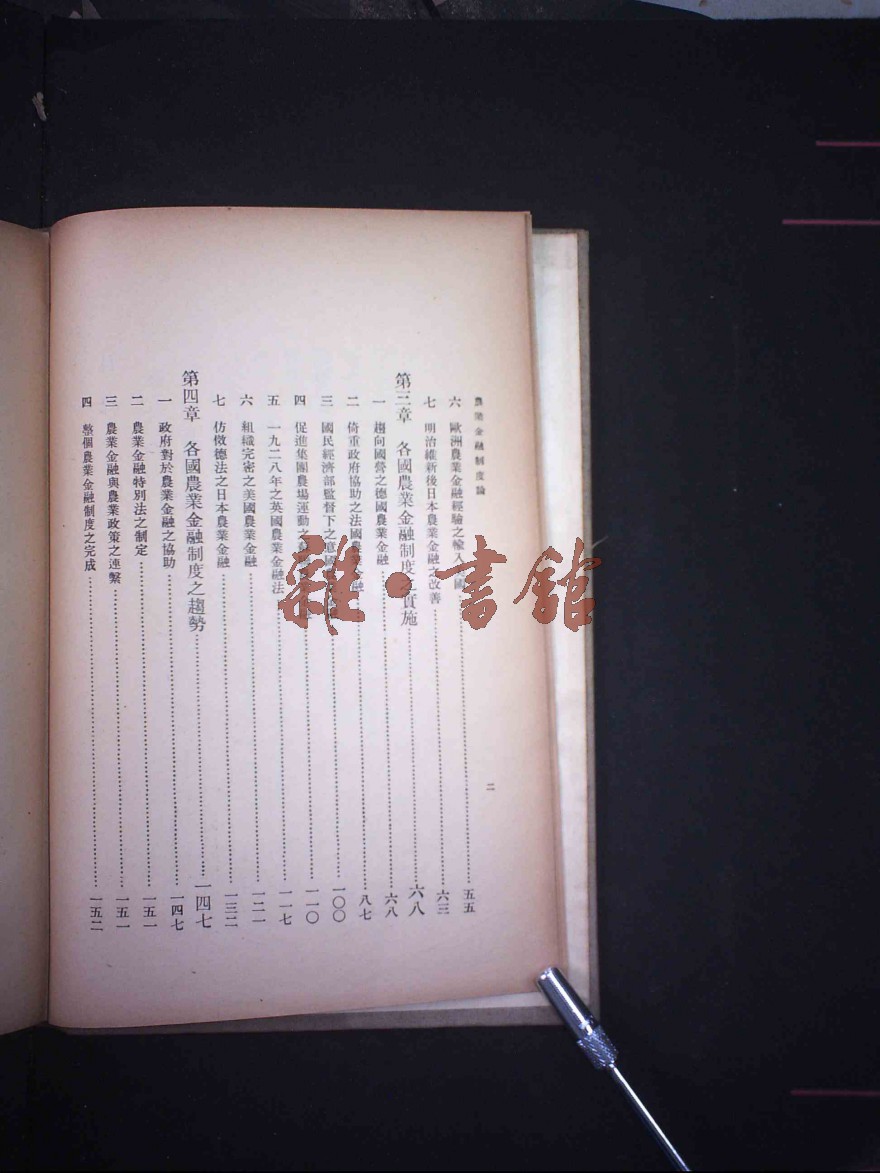 農業金融制度論
二
六 歐洲農業金融經驗之輸入國……五五
七 明治維新後日本農業金融之改善……六三
第三章 各國農業金融制度之實施……六八
一 趨向國營之德國農業金融……六八
二 倚重政府協助之法國農業金融……八七
三 國民經濟部監督下之意國……一〇〇
四 促進集團農場運動之……一一〇
五 一九二八年之英國農業金融法……一一七
六 組織完密之美國農業金融……一二一
七 仿傚德法之日本農業金融……一三二
第四章 各國農業金融制度之趨勢……一四七
一 政府對於農業金融之協助……一四七
二 農業金融特別法之制定……一五一
三 農業金融與農業政策之連繫……一五一
四 整個農業金融制度之完成……一五二
雜·書館